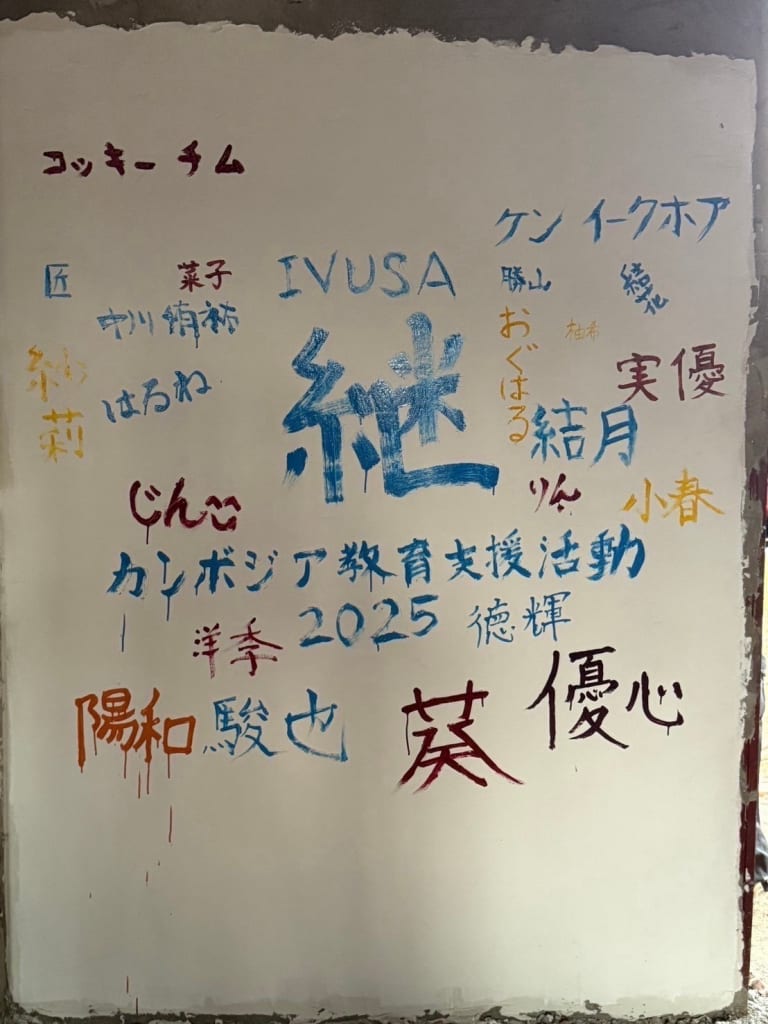 コッキー チム
ケン イークホア
匠
菜子
IVUSA
勝山
結花
中川 侑祐
おぐはる
柚希
実優
莉
はるね
継
結月
じんこ
りん
小春
カンボジア教育支援活動
2025
徳輝
洋季
陽和
駿也
葵
優心